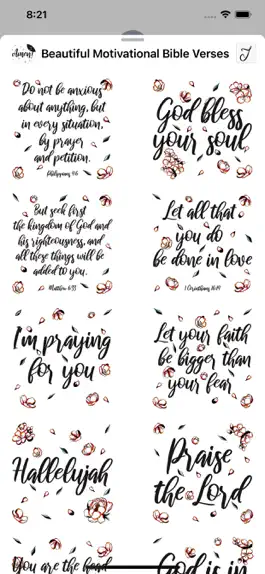 8:21
Amen!
Beautiful Motivational Bible Verses
Do not be anxious
about anything, but
in every situation,
by prayer
and petition.
Philippians 4:6
God bless
your soul
But seek first
the kingdom of God and
his righteousness, and
all these things will be
added to you.
Matthew 6:33
Let all that
you do
be done in love
1 Corinthians 16:14
I'm praying
for you
Let your faith
be bigger than
your fear
Hallelujah
Praise
the Lord
You are the head
God is in